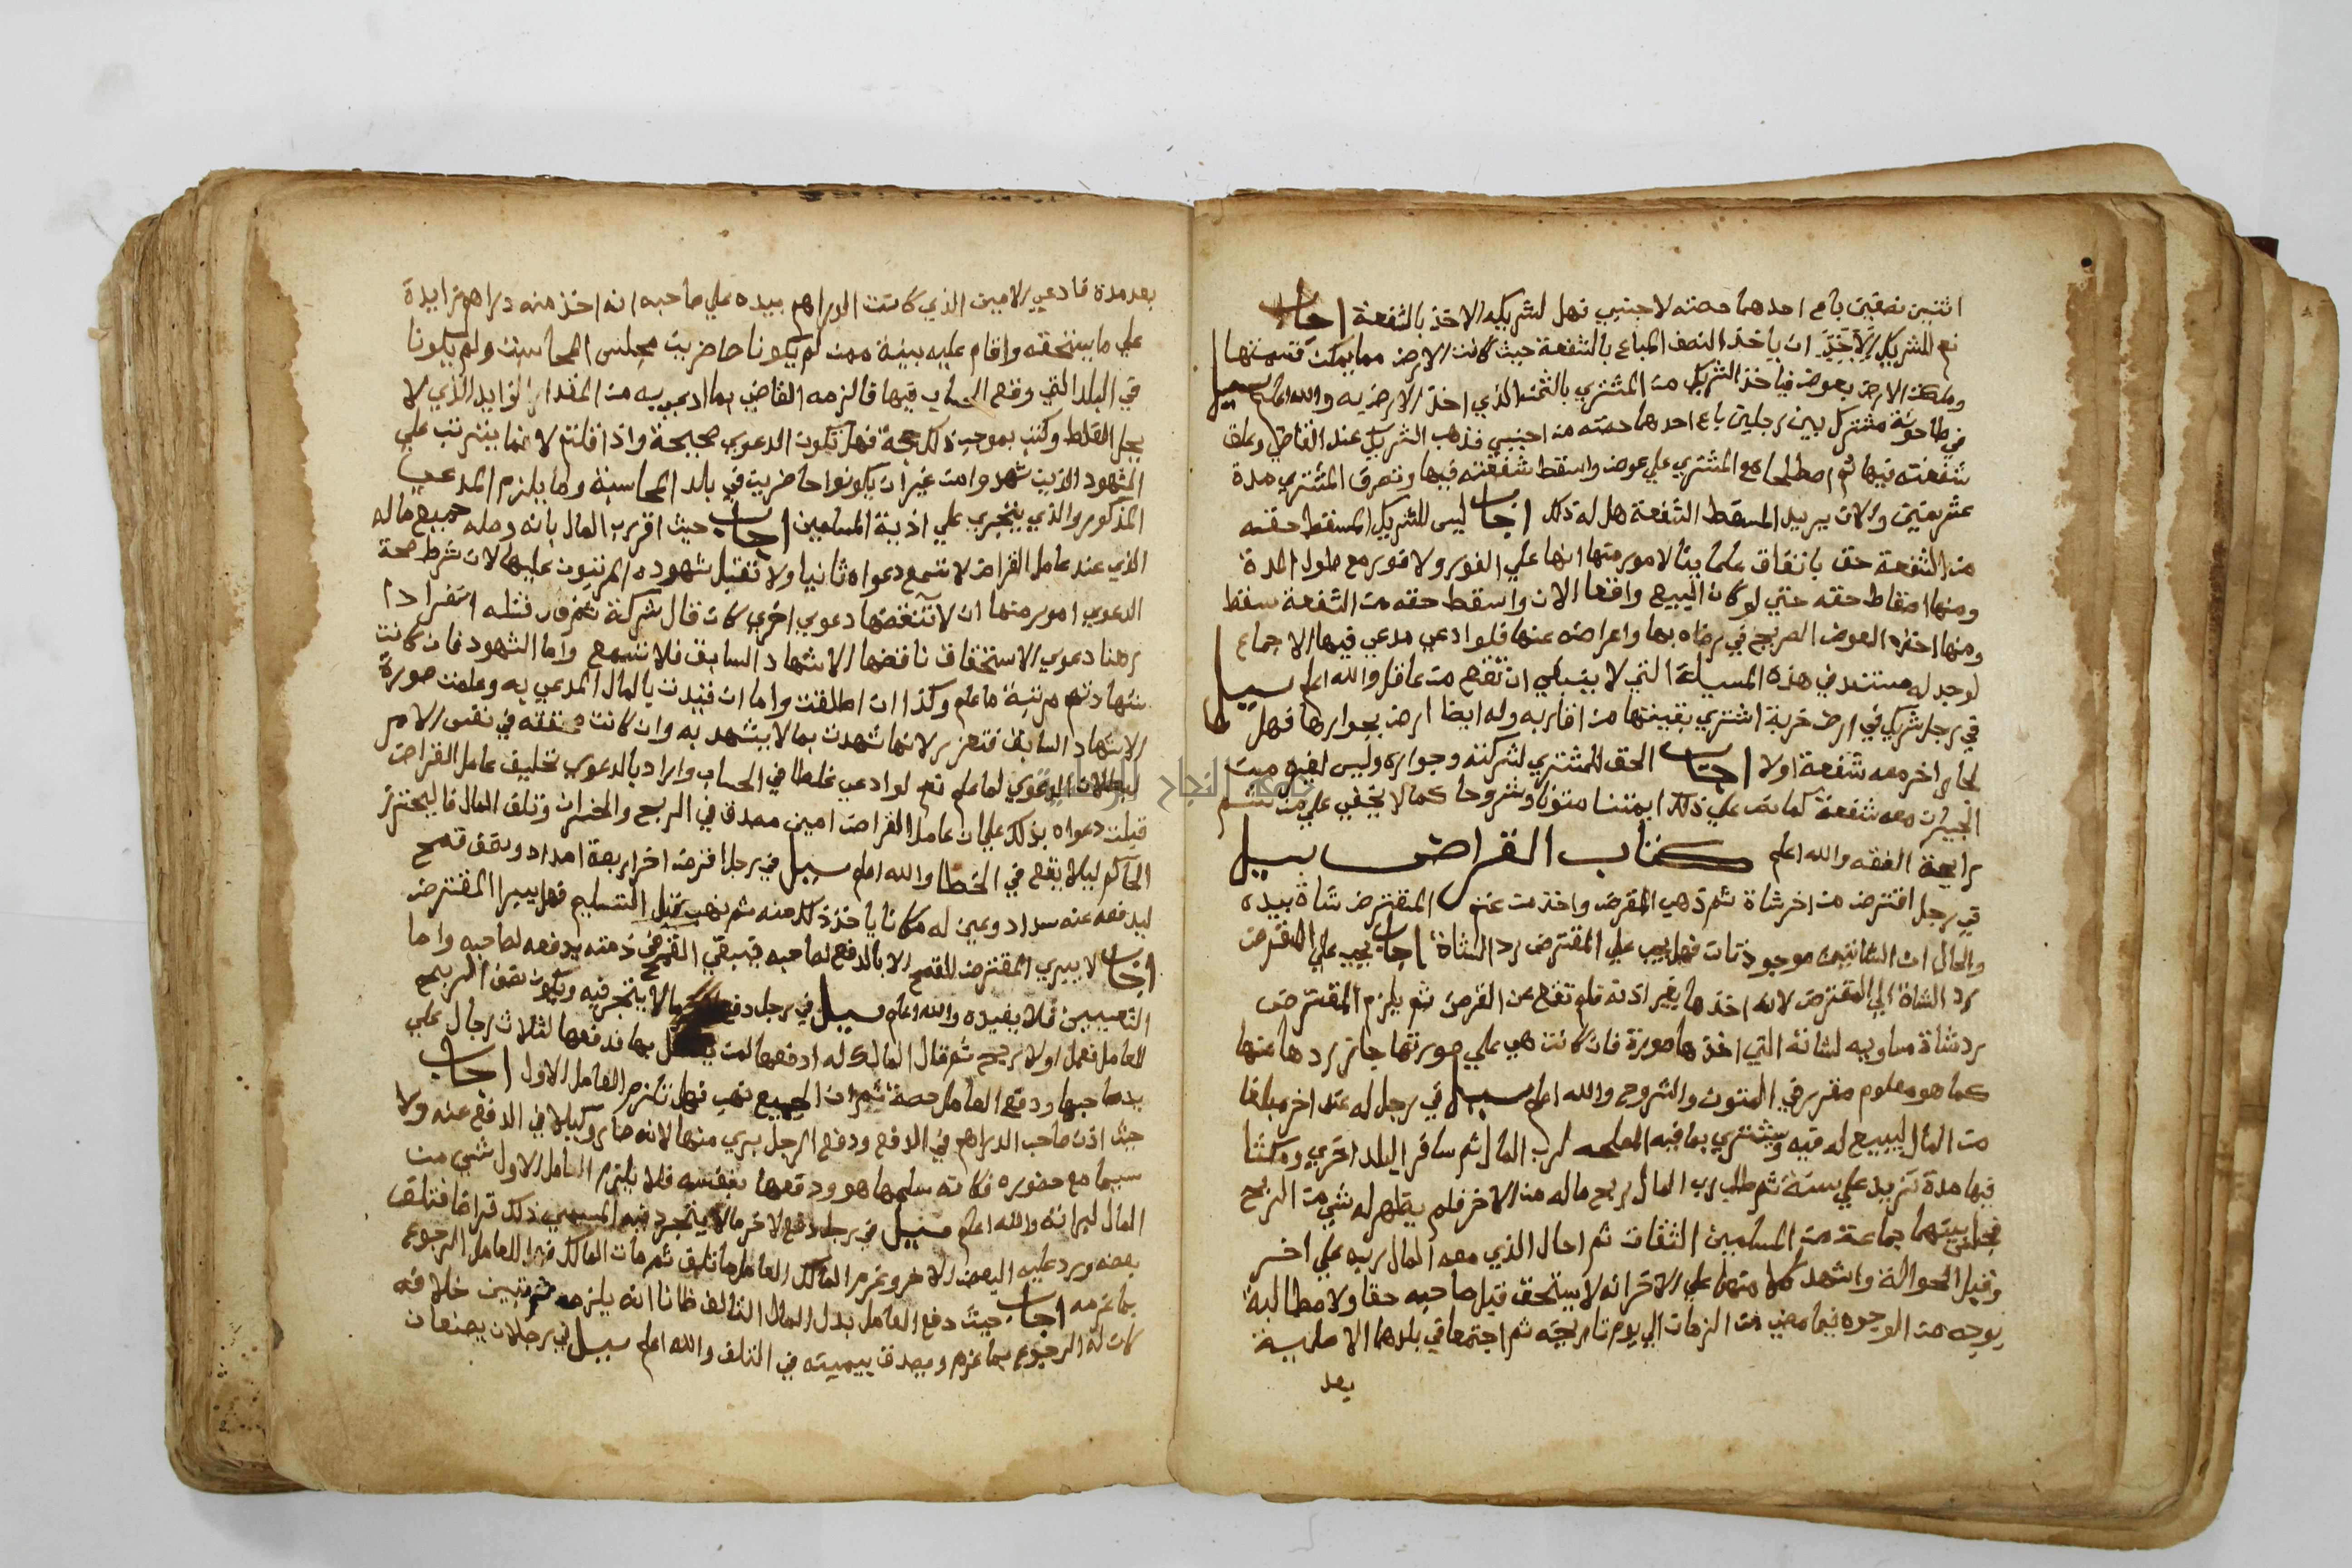 اثنين نصفين باع احدهما حصته لاجنبي فهل لشريكه الاخذ بالشفعة اجاب
نعم للشريك الاخر ان ياخذ النصف المباع بالشفعة حيث كانت الارض مما يمكن قسمتها
وملكت الارض بعوض فياخذ الشريك من المشتري بالثمن الذي اخذ الارض به والله اعلم سيل
في طاحونة مشترك بين رجلين باع احدهما حصته من اجنبي فذهب الشريك عند القاضي وعلق
شفعته فيها ثم اصطلحا مع المشتري علي عوض واسقط شفعته فيها وتصرف المشتري مدة
عشر سنين والان يريد المسقط الشفعة هل له ذلك اجاب ليس للشريك المسقط حقه
من الشفعة حق باتفاق علمائنا لامور منها انها علي الفور ولا فور مع طول المدة
ومنها اسقاط حقه حتي لو كان البيع واقعا الان واسقط حقه من الشفعة سقط
ومنها اخذه العوض الصريح في رضاه بها واعراضه عنها فلو ادعي مدعي فيها الاجماع
لوجد له مستند في هذه المسيلة التي لا ينبغي ان تقع من عاقل والله اعلم سيل
في رجل شريك في ارض خربة اشتري بقيتها من اقاربه وله ايضا ارض بجوارها فهل
لجار اخر معه شفعة اولا اجاب الحق للمشتري لشركته وجواره وليس لغيره من
الجيران معه شفعة كما نص علي ذلك ايمتنا متونا وشروحا كما لا يخفي علي من شم
رايحة الفقه والله اعلم كتاب القراض سيل
في رجل اقترض من اخر شاة ثم ذهب المقرض واخذ من غنم المقترض شاة بيده
والحال ان الشاتين موجودتان فهل يجب علي المقترض رد الشاة اجاب يجب علي المقرض
رد الشاة الي المقترض لانه اخذها بغير اذنه فلم تقع عن القرض ثم يلزم المقترض
رد شاة مساويه لشاته التي اخذها صورة فان كانت هي علي صورتها جاز ردها عنها
كما هو معلوم مقرر في المتون والشروح والله اعلم سيل في رجل له عند اخر مبلغا
من المال ليبيع له فيه ويشتري بما فيه المصلحه لرب المال ثم سافر الي بلد اخري ومكثا
فيها مدة تزيد علي سنة ثم طلب رب المال ربح ماله من الاخر فلم يظهر له شي من الربح
فجلس بينهما جماعة من المسلمين الثقات ثم احال الذي معه المال ربه علي اخر
وقبل الحوالة واشهد كل منهما علي الاخر انه لا يستحق قبل صاحبه حقا ولا مطالبة
بوجه من الوجوه فيما مضي من الزمان الي يوم تاريخه ثم اجتمعا في بلدهما الاصلية
بعد
بعد مدة فادعي الامين الذي كانت الدراهم بيده علي صاحبه انه اخذ منه دراهم زايدة
علي ما يستحقه واقام عليه بينة ممن لم يكونا حاضرين مجلس المحاسبة ولم يكونا
في البلد التي وقع الحساب فيها فالزمه القاضي بما ادعي به من المقدار الزايد الذي لا
يجل الغلط وكتب بموجب ذلك حجة فهل تكون الدعوي صحيحة واذا قلتم لا فما يترتب علي
الشهود الذين شهدوا من غير ان يكونوا حاضرين في بلد المحاسبة وما يلزم المدعي
المذكور والذي يتجري علي اذية المسلمين اجاب حيث اقر رب المال بانه وصله جميع ماله
الذي عند عامل القراض لا تسمع دعواه ثانيا ولا تقبل شهوده المرتبون عليها لان شرط صحة
الدعوي امور منها ان لا تنقضها دعوي اخري كان قال شركة ثم قتله انفرادا
وهنا دعوي الاستحقاق ناقضها الاشهاد السابق فلا تسمع واما الشهود فان كانت
شهادتهم مرتبة ما علم وكذا ان اطلقت واما ان قيدت بالمال المدعي به وعلمت صورة
الاشهاد السابق فتعزر لانها شهدت بما لا يشهد به وان كانت محققه في نفس الامر
لبطلان الدعوي لما علم نعم لو ادعي غلطا في الحساب واراد بالدعوي تحليف عامل القراض
قبلت دعواه بذلك علي ان عامل القراض امين مصدق في الربح والخسران وتلف المال فاليحترز
الحاكم ليلا يقع في الخطا والله اعلم سيل في رجل اقترض اخر اربعة امداد ونصف قمح
ليدفعه عنه سداد وعين له مكانا ياخذ ذلك منه ثم نهب قبل التسليم فهل يبرا المقترض
اجاب لا يبري المقترض للقمح الا بالدفع لصاحبه فيبقي القمح في ذمته يدفعه لصاحبه واما
التعيين فلا يفيده والله اعلم سيل في رجل دفع لاخر مالا يتجر فيه ويكون نصف الربح
للعامل فعمل اولا ربح ثم قال المالك له ادفعها لمن يعمل بها فدفعها لثلاث رجال علي
يد صاحبها ودفع العامل حصة ثم ان الجميع نهب فهل تلزم العامل الاول اجاب
حيث اذن صاحب الدراهم في الدفع ودفع الرجل بري منها لانه صار وكيلا في الدفع عنه ولا
سيما مع حضوره فكانه سلمها هو ودفعها بنفسه فلا يلزم العامل الاول شي من
المال لبراءته والله اعلم سيل في رجل دفع لاخر مالا يتجر فيه المسمي ذلك قراضا فتلف
بعضه ورد عليه البعض الاخر وغرم المالك العامل ما تلف ثم مات المالك فهل للعامل الرجوع
بما غرمه اجاب حيث دفع العامل بدل المال التالف ظانا انه يلزمه ثم تبين خلافه
كان له الرجوع بما غرم ويصدق بيمينه في التلف والله اعلم سيل في رجلان يصنعان
جامعة النجاح الوطنية